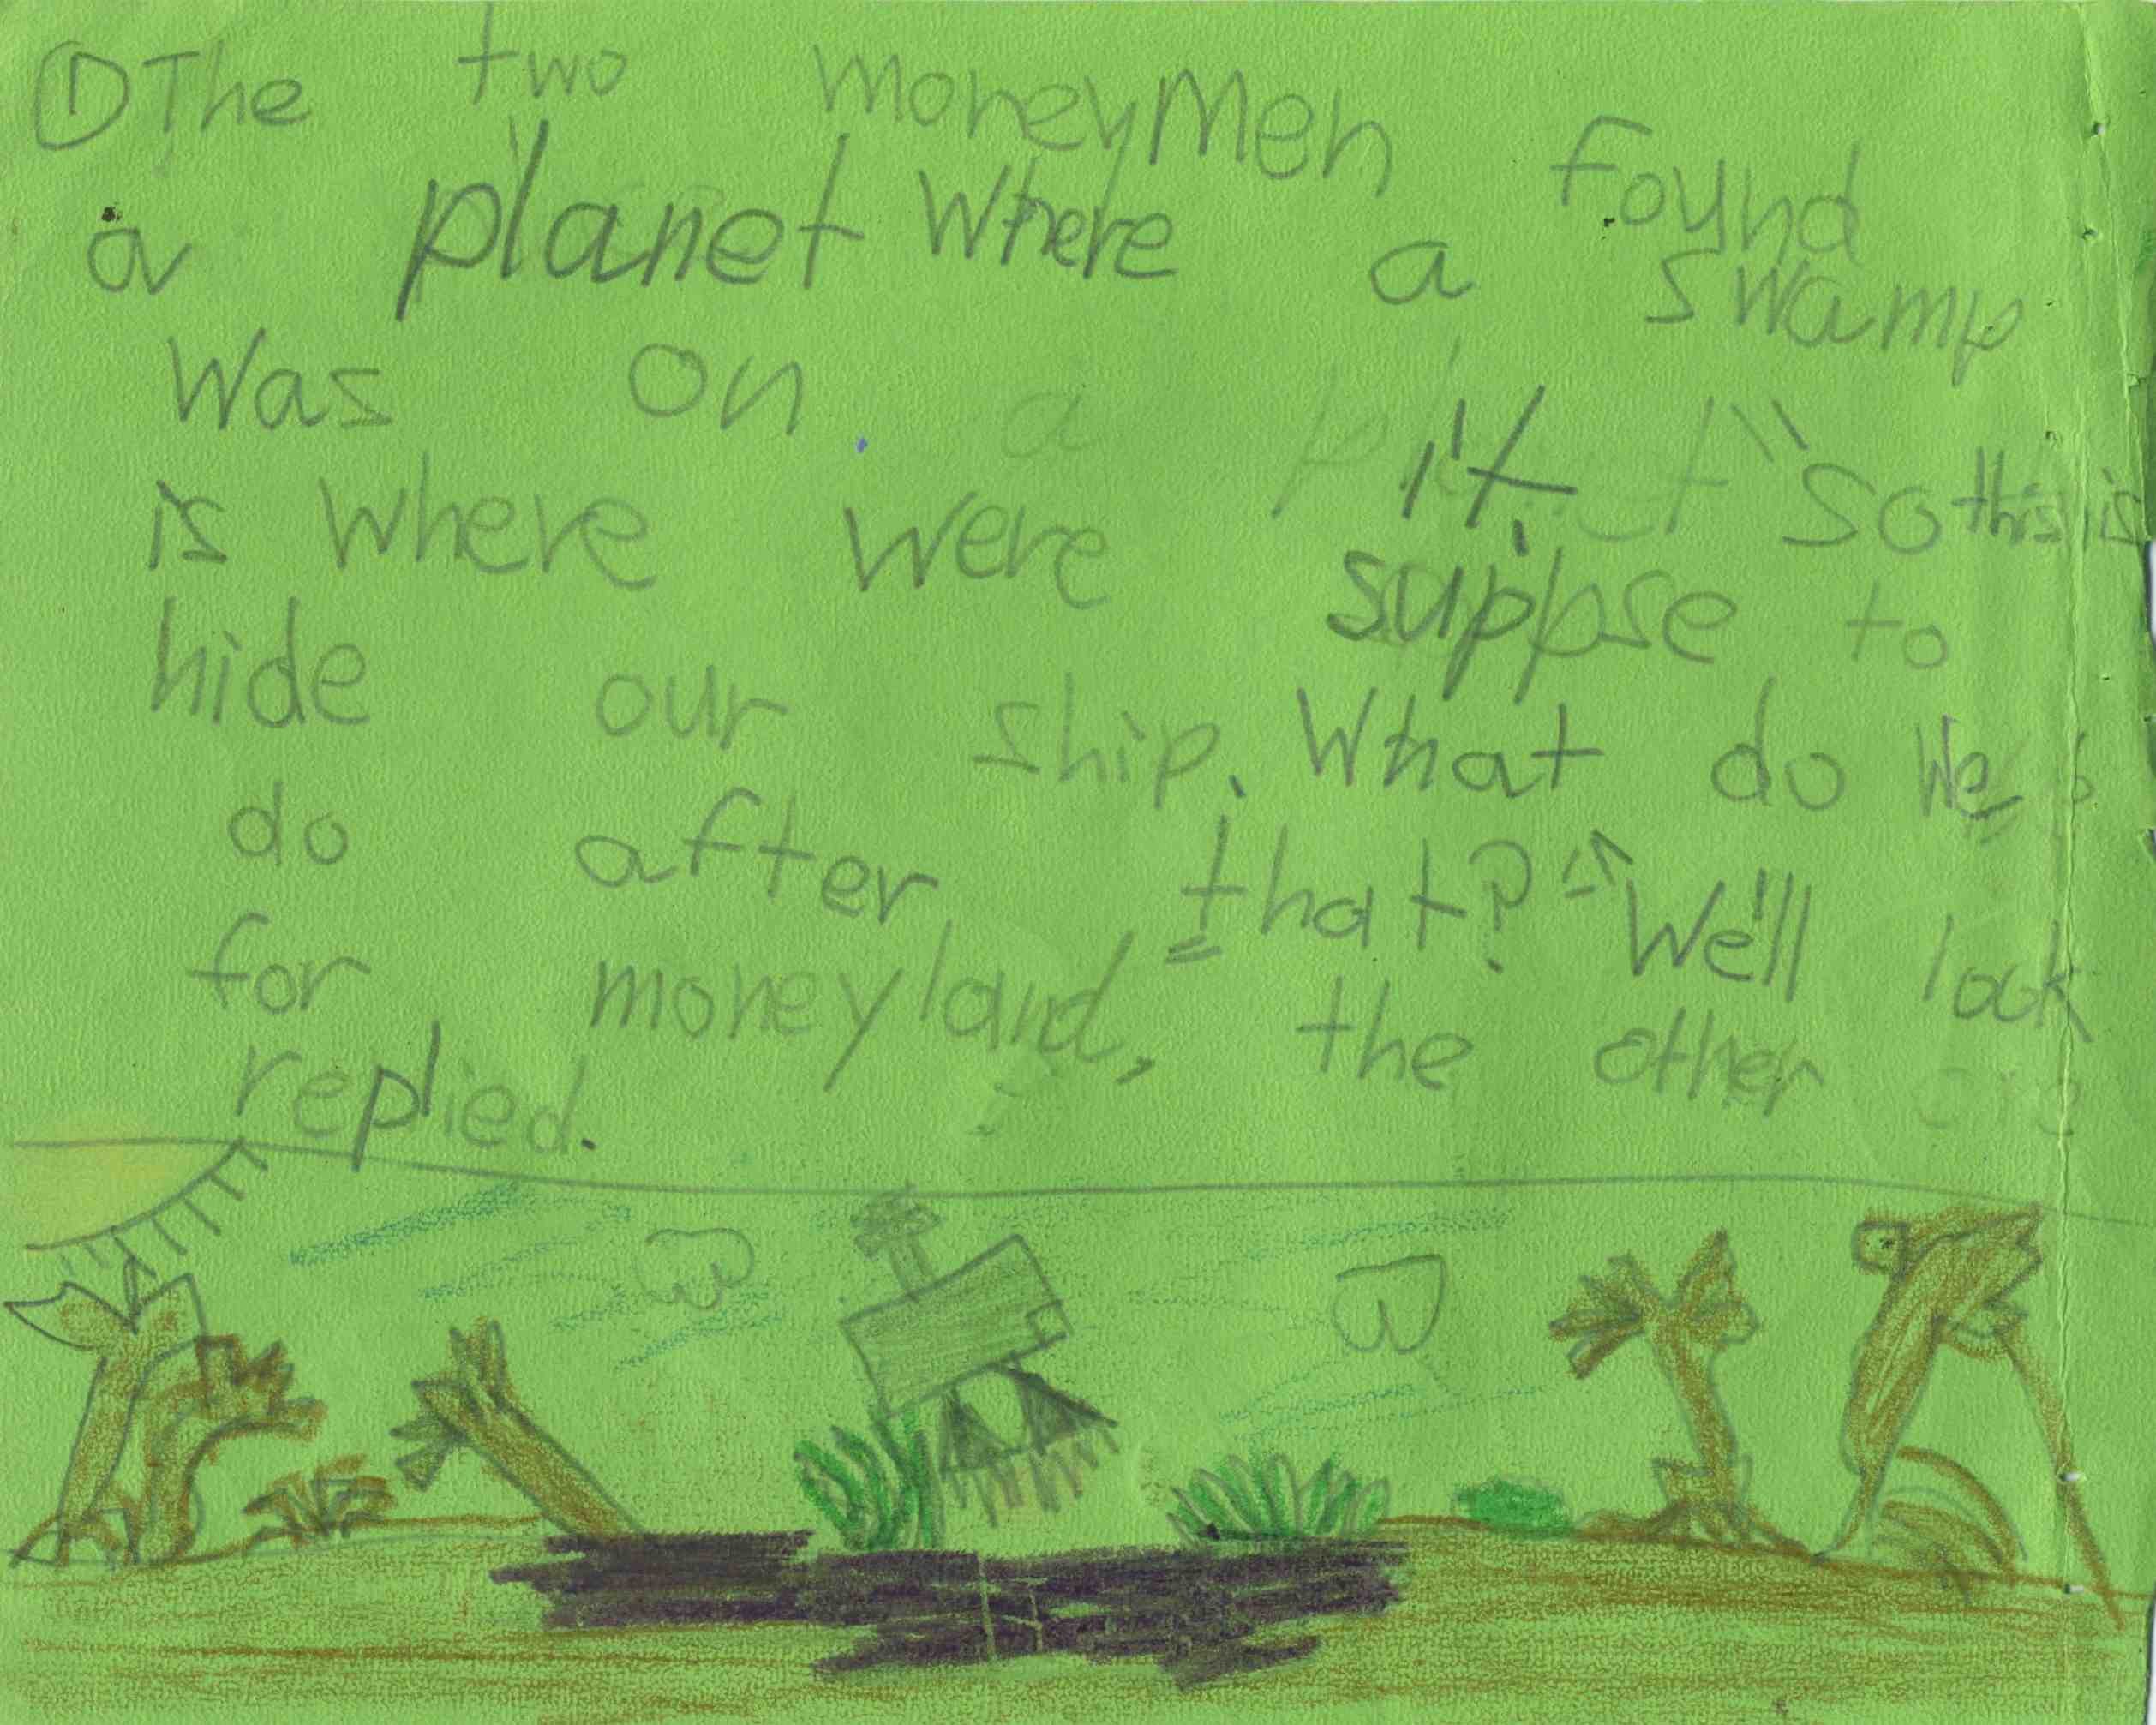 ① The two moneymen found
a planet where a swamp
was on it. "So this is
is where were suppose to
hide our ship. What do we
do after that?" "We'll look
for moneyland," the other one
replied.